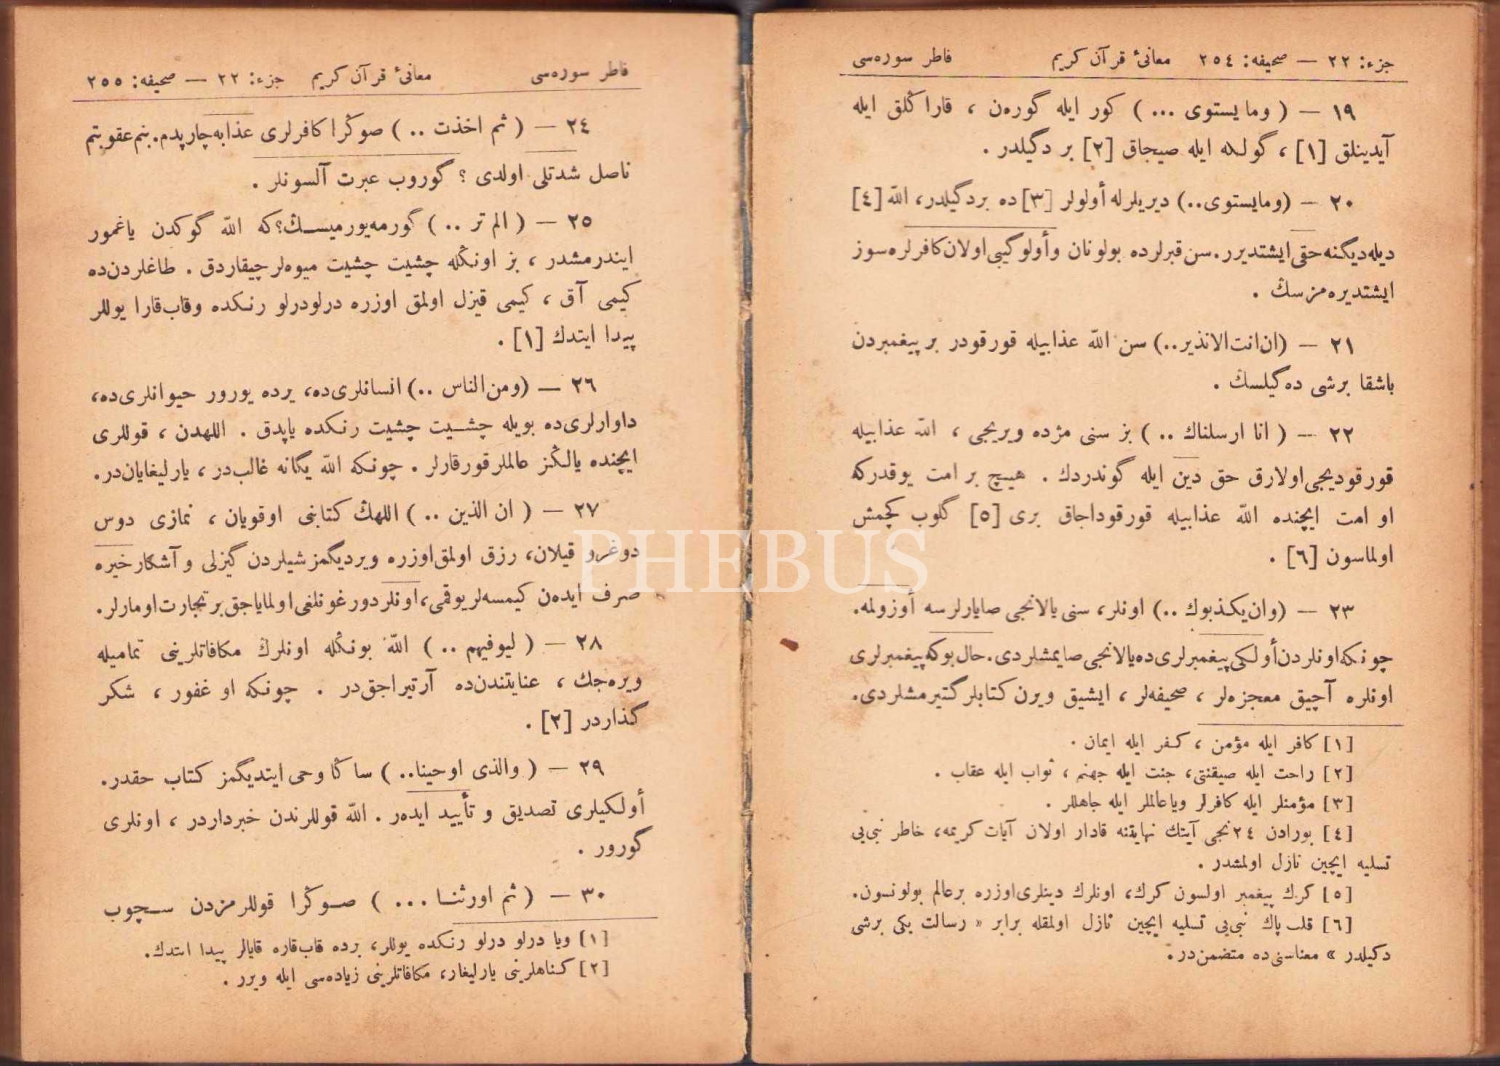 جزء: ٢٢ — صحيفه: ٢٥٤ معانئ قرآن كريم فاطر سوره‌سى
١٩ — ( وما يستوى ... ) كور ايله گوره‌ن ، قاراڭلق ايله
آيدينلق [١] ، گولگه ايله صيجاق [٢] بر دگيلدر .
٢٠ — (وما يستوى..) ديريلرله أولولر [٣] ده بر دگيلدر، اللّٰه [٤]
ديله‌ديگنه حقى ايشتديرر. سن قبرلرده بولونان و أولو گيبى اولان كافرلره سوز
ايشتديره‌مزسڭ .
٢١ — (ان انت الا نذير..) سن اللّٰه عذابيله قورقودر بر پيغمبردن
باشقا برشى ده‌گيلسڭ .
٢٢ — ( انا ارسلناك .. ) بز سنى مژده ويريجى ، اللّٰه عذابيله
قورقوديجى اولارق حق دين ايله گوندردك . هيچ بر امت يوقدركه
او امت ايچنده اللّٰه عذابيله قورقوداجاق برى [٥] گلوب كچمش
اولماسون [٦] .
٢٣ — (وان يكذبوك ..) اونلر، سنى يالانجى صايارلرسه أوزولمه.
چونكه اونلردن أولكى پيغمبرلرى ده يالانجى صايمشلردى. حال بوكه پيغمبرلرى
اونلره آچيق معجزه‌لر ، صحيفه‌لر ، ايشيق ويرن كتابلر گتيرمشلردى.
[١] كافر ايله مؤمن ، كفر ايله ايمان .
[٢] راحت ايله صيقنتى، جنت ايله جهنم ، ثواب ايله عقاب .
[٣] مؤمنلر ايله كافرلر ويا عالملر ايله جاهللر .
[٤] بورادن ٢٤نجى آيتك نهايتنه قادار اولان آيات كريمه، خاطر نبى‌يى
تسليه ايچين نازل اولمشدر .
[٥] گرك پيغمبر اولسون گرك، اونلرك دينلرى اوزره بر عالم بولونسون.
[٦] قلب پاك نبى‌يى تسليه ايچين نازل اولمقله برابر « رسالت يكى برشى
دكيلدر » معناسنى‌ده متضمن‌در.
فاطر سوره‌سى معانئ قرآن كريم جزء: ٢٢ — صحيفه: ٢٥٥
٢٤ — ( ثم اخذت .. ) صوڭرا كافرلرى عذابه چارپدم. بنم عقوبتم
ناصل شدتلى اولدى ؟ گوروب عبرت آلسونلر .
٢٥ — ( الم تر .. ) گورمه‌يورميسڭ؟ كه اللّٰه گوكدن ياغمور
ايندرمشدر ، بز اونڭله چشيت چشيت ميوه‌لر چيقاردق . طاغلردن‌ده
كيمى آق ، كيمى قيزل اولمق اوزره درلو درلو رنكده وقاب‌قارا يوللر
پيدا ايتدك [١] .
٢٦ — (ومن الناس ..) انسانلرى‌ده، يرده يورور حيوانلرى‌ده،
داوارلرى‌ده بويله چشيت چشيت رنكده ياپدق . اللهدن ، قوللرى
ايچنده يالڭز عالملر قورقارلر . چونكه اللّٰه يگانه غالب‌در ، يارليغايان‌در.
٢٧ — ( ان الذين .. ) اللهڭ كتابنى اوقويان ، نمازى دوس
دوغرو قيلان، رزق اولمق اوزره ويرديگمز شيلردن گيزلى و آشكار خيره
صرف ايده‌ن كيمسه‌لر يوقمى، اونلر دورغونلغى اولماياجق بر تجارت اومارلر.
٢٨ — ( ليوفيهم .. ) اللّٰه بونڭله اونلرك مكافاتلرينى تماميله
ويره‌جك ، عنايتندن‌ده آرتيراجق‌در . چونكه او غفور ، شكر
گذاردر [٢] .
٢٩ — ( والذى اوحينا.. ) ساڭا وحى ايتديگمز كتاب حقدر.
أولكيلرى تصديق و تأييد ايده‌ر . اللّٰه قوللرندن خبرداردر ، اونلرى
گورور .
٣٠ — ( ثم اورثنا ... ) صوڭرا قوللرمزدن سچوب
[١] ويا درلو درلو رنكده يوللر، برده قاب‌قاره قايالر پيدا ايتدك.
[٢] گناهلرينى يارليغار، مكافاتلرينى زياده‌سى ايله ويرر .
PHEBUS